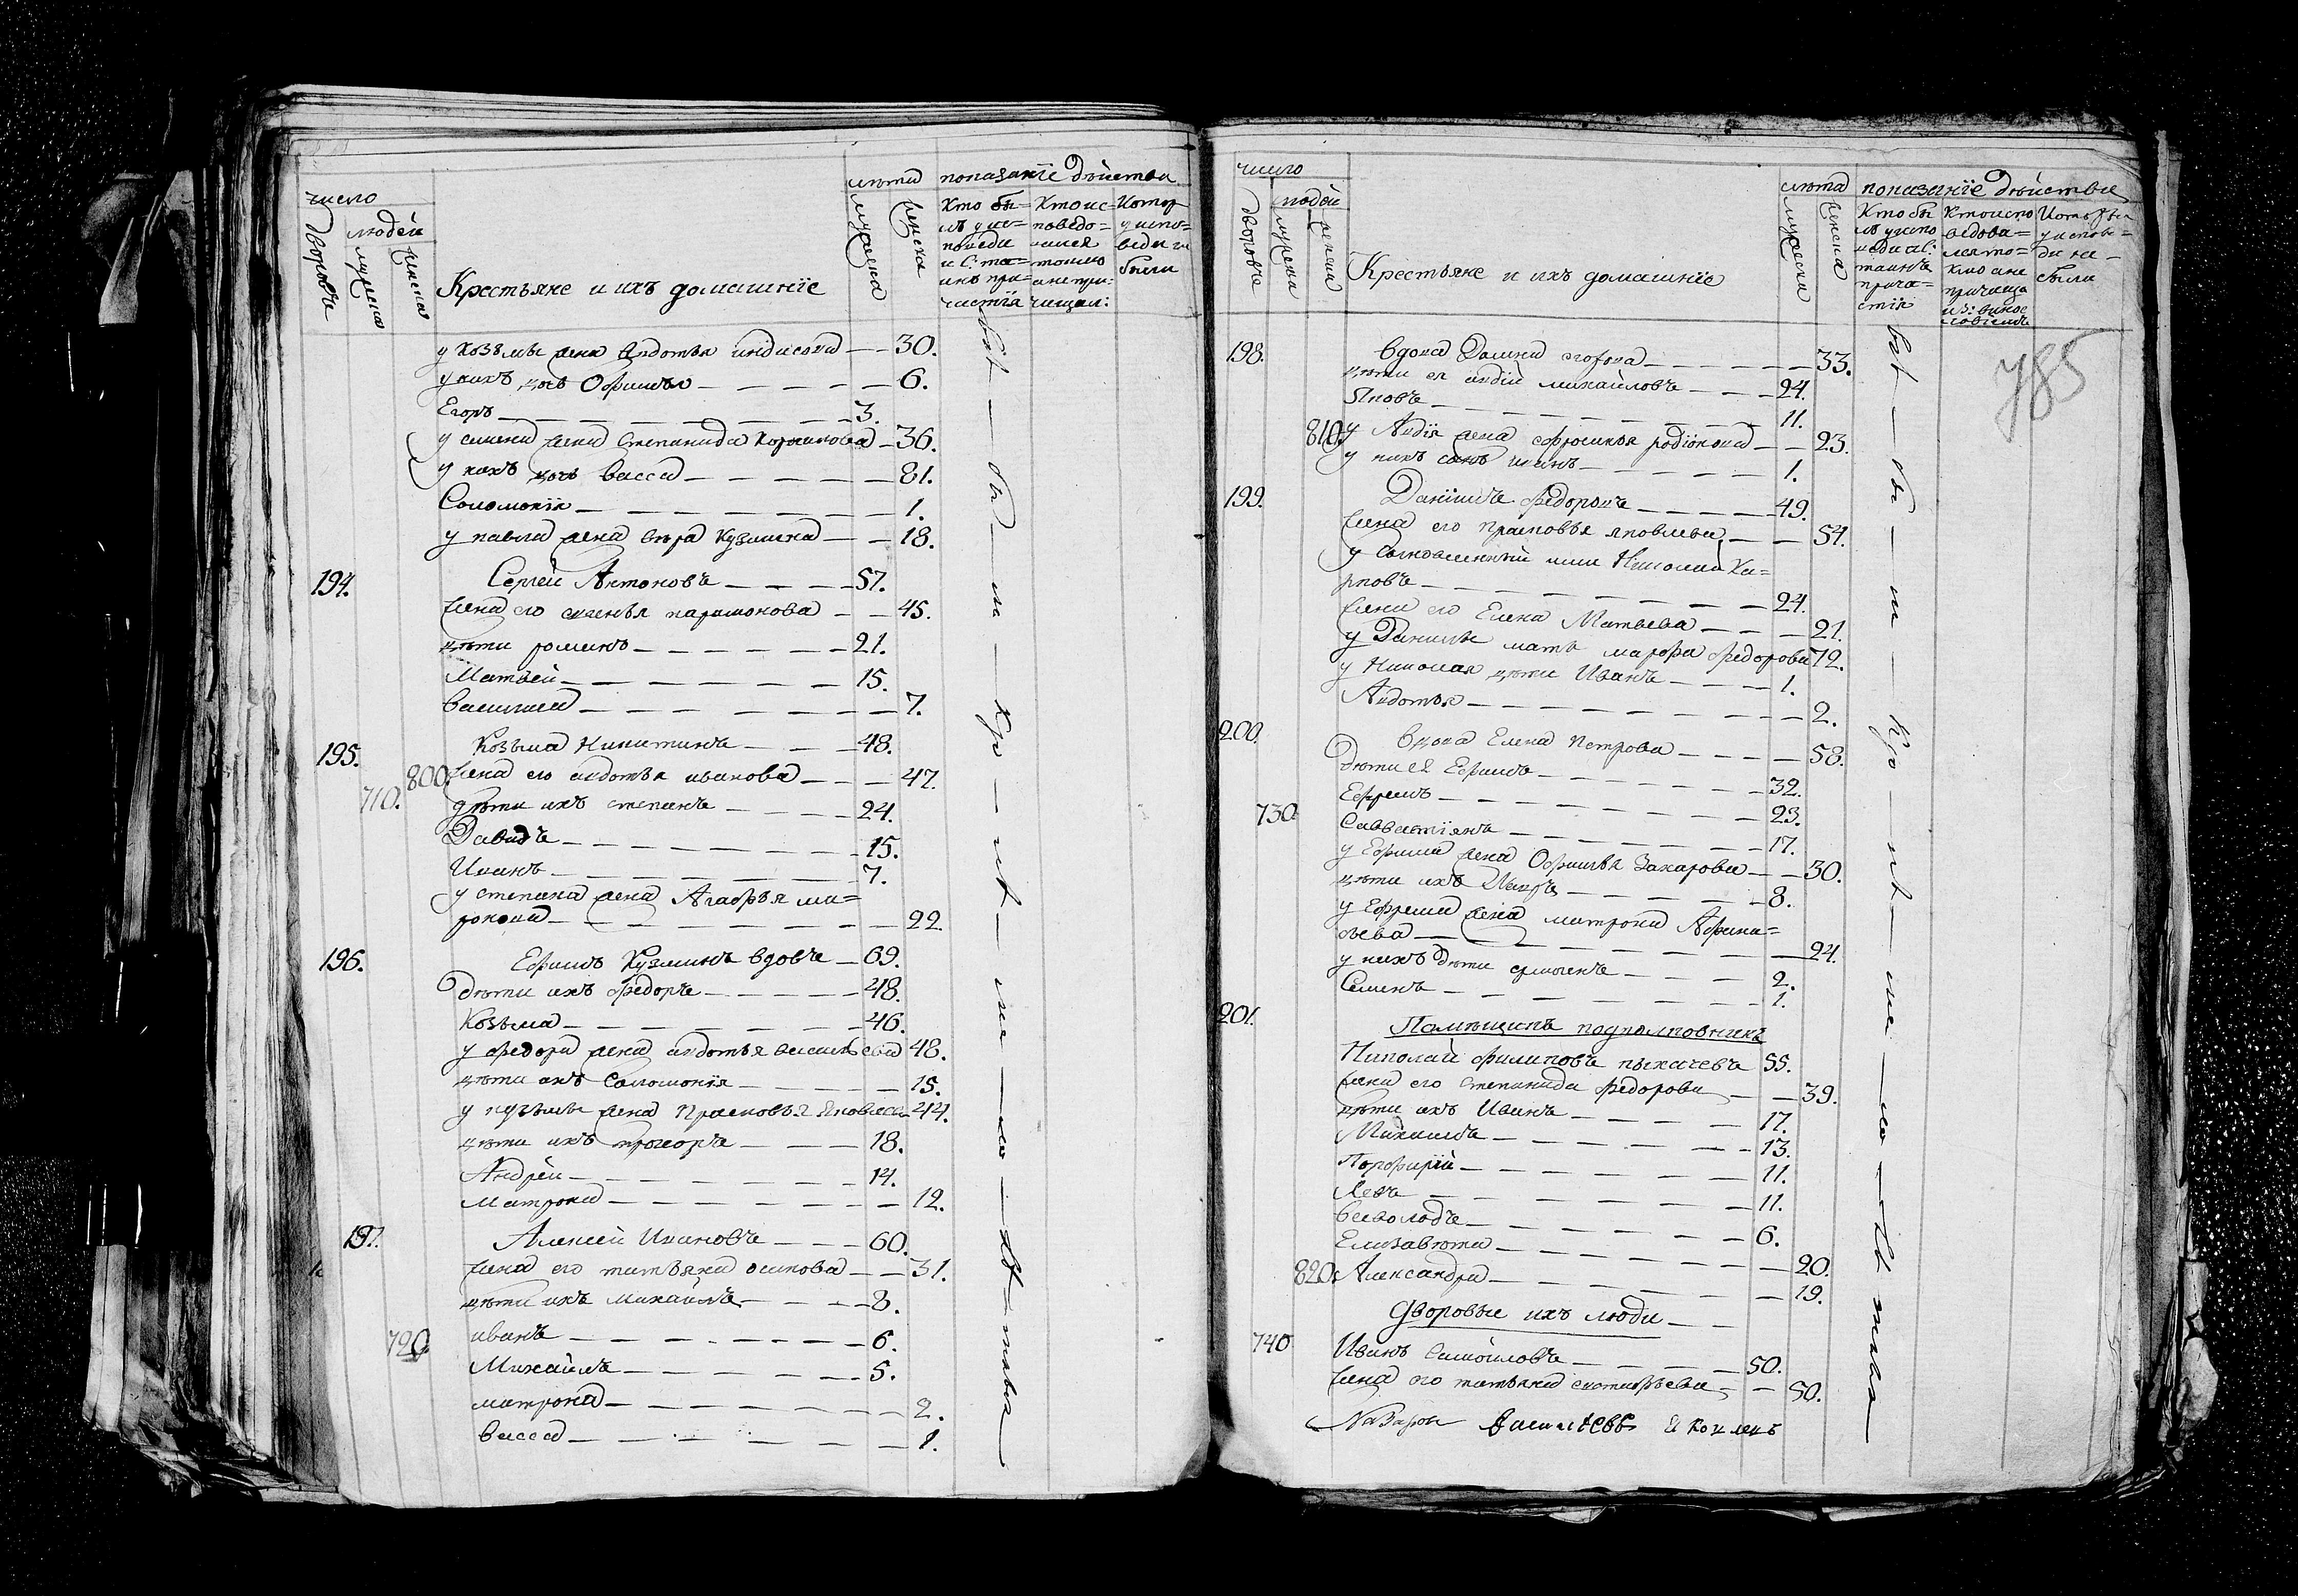 число
людей
дворовъ
мужеска
женска
Крестьяне и ихъ домашнїе
лѣта
мужеска
женска
показанїе дѣйства
Кто бы=
лъ у испо=
поведи
и С: та=
инъ при=
частїя
Кто ис=
поведо=
вался
токмо
а не при:
чищал:
Котор
у испо=
веди не
были
у Козьмы жена Авдотья 30.
у нихъ дочь Офимья 6.
Егоръ 3.
у жена Степанида 36.
у нихъ дочь Васса 81.
Соломонїя 1.
у павла жена вѣра Кузмина 18.
194. Сергей Антоновъ 57.
жена его парамонова 45.
дѣти романъ 21.
Матвей 15.
василиса 7.
195. Козьма Никитинъ 48.
800. жена его авдотья иванова 47.
710. дѣти ихъ степанъ 24.
Давидъ 15.
Иванъ 7.
у степана жена Агафья ми=
ронова 22.
196. Ефимъ Кузминъ вдовъ 69.
Дѣти ихъ федоръ 48.
Козьма 46.
у федора жена авдотья васильева 48.
дѣти ихъ Соломонїя 15.
у кузьмы жена Прасковья Яковлева 44.
дѣти ихъ прохоръ 18.
Андрей 14.
Матрона 12.
197. Алексей Ивановъ 60.
жена его татьяна осипова 31.
дѣти ихъ михайла 8.
иванъ 6.
720. Михайла 5.
матрона 2.
васса 1.
всѣ бы ли
число
дворовъ
людей
мужеска
женска
Крестьяне и ихъ домашнїе
лѣта
мужеска
женска
показанїе дѣйства
Кто бы
лъ у испо
веди
таинъ
прича=
стїя
Кто испо
ведова=
лся то=
кмо а не
причаща
Которые
у испове=
ди не
были
785
198. вдова Домна егорова 33.
дѣти ея михайловъ 24.
Яковъ 11.
810. у жена родїонова 23.
у нихъ сынъ иванъ 1.
199. Данїила федоровъ 49.
жена его Прасковья яковлева 54.
у Николай Ка=
рповъ 24.
жена его Елена Матвева 21.
у Данилы мать марфа федорова 72.
у Николая дѣти Иванъ 1.
Авдотья 2.
200. вдова Елена Петрова 58.
Дѣти ея Ефимъ 32.
Ефремъ 23.
730. Савастїянъ 17.
у Ефима жена Офимья Захарова 30.
дѣти ихъ 8.
у Ефрема жена матрона Афана=
сьева 24.
у нихъ дѣти 2.
Семенъ 1.
201. Помѣщикъ подполковникъ
Николай филиповъ пыхачевъ 55.
жена его Степанида федорова 39.
дѣти ихъ Иванъ 17.
Михаила 13.
Порфирїй 11.
Левъ 11.
всеволодъ 6.
Елизавета 20.
820. Александра 19.
дворовые ихъ люди
740 Иванъ Самойловъ 50.
жена его татьяна 50.